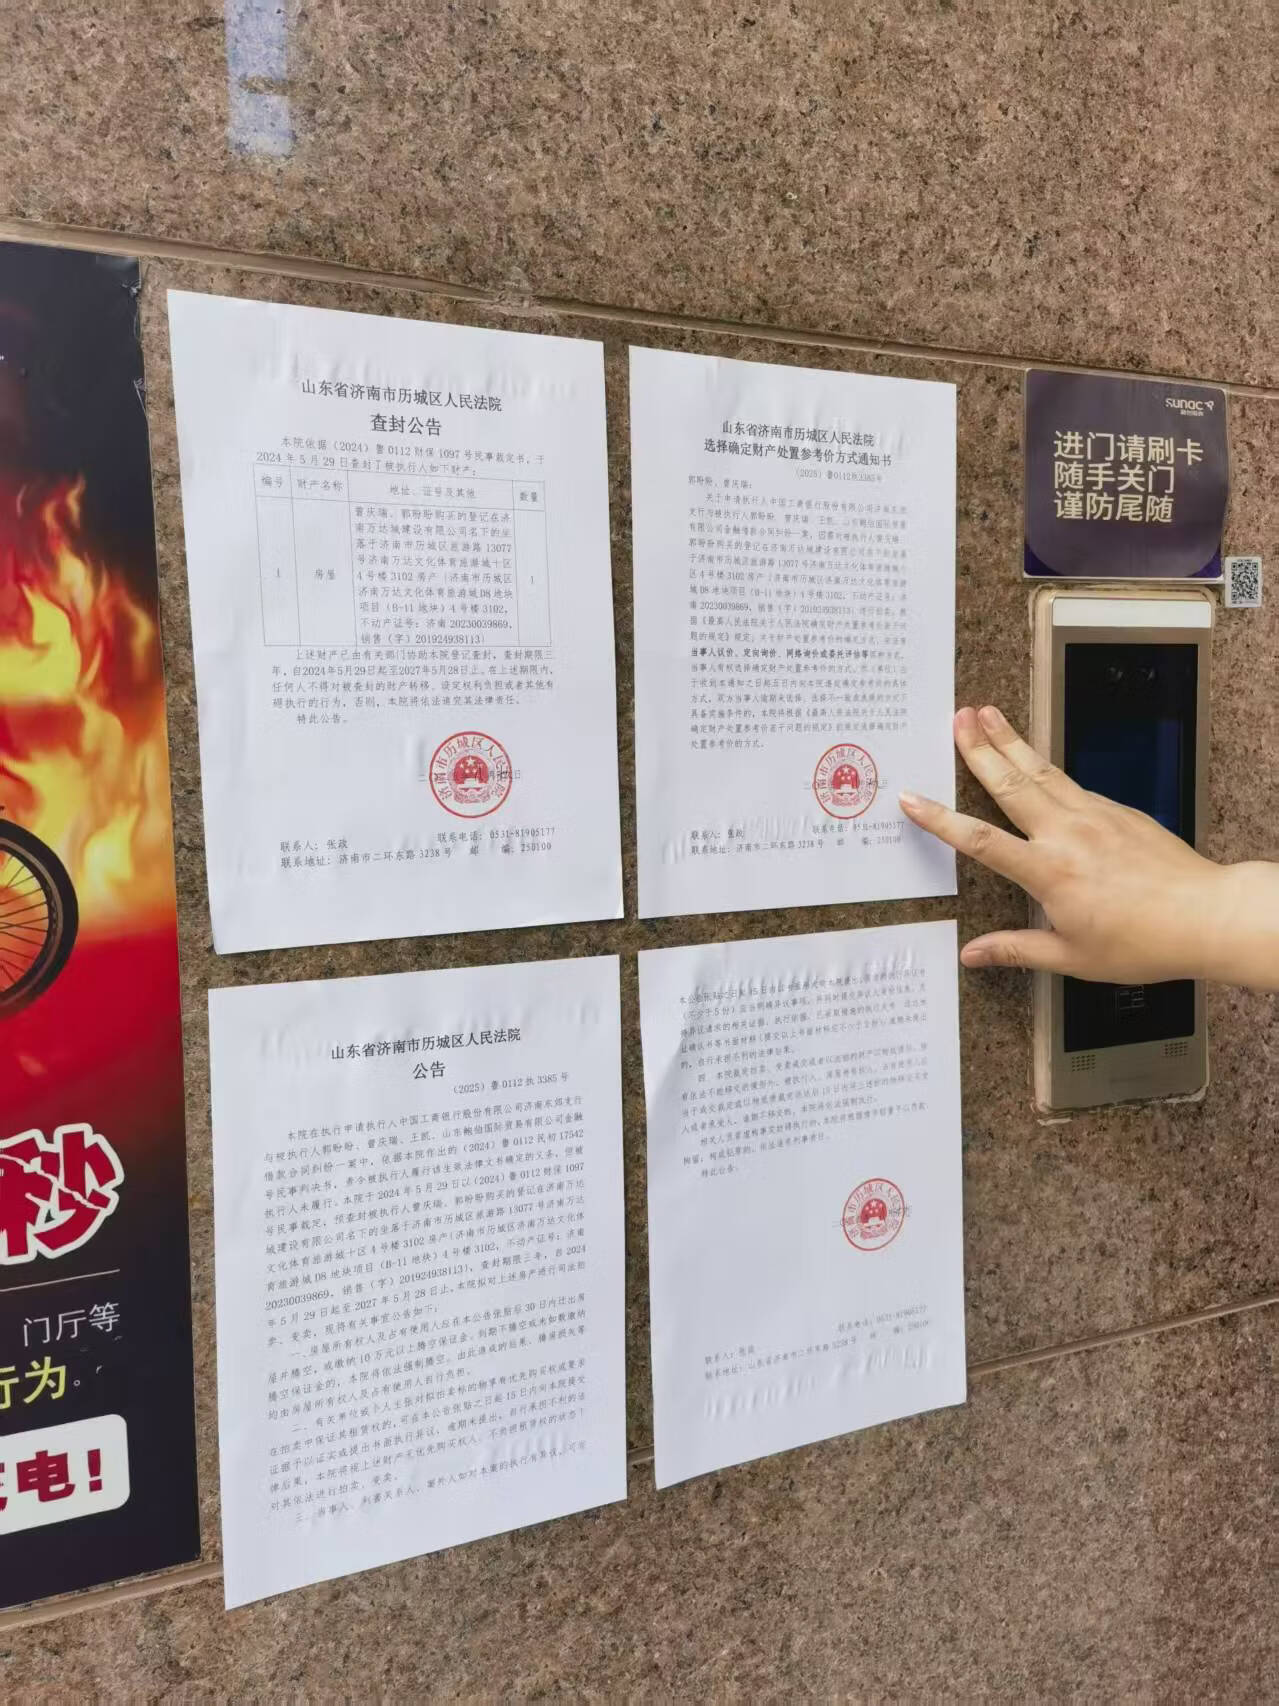 山东省济南市历城区人民法院
查封公告
本院依据（2024）鲁0112财保1097号民事裁定书，于
2024年5月29日查封了被执行人如下财产：
编号 财产名称 地址、证号及其他 数量
1 房屋 曾庆瑞、郭盼盼购买的登记在济
南万达城建设有限公司名下的坐
落于济南市历城区旅游路13077
号济南万达文化体育旅游城十区
4号楼3102房产（济南市历城区
济南万达文化体育旅游城D8地块
项目（B-11地块）4号楼3102，
不动产证号：济南20230039869，
销售（字）201924938113） 1
上述财产已由有关部门协助本院登记查封，查封期限三
年，自2024年5月29日起至2027年5月28日止。在上述期限内，
任何人不得对被查封的财产转移、设定权利负担或者其他有
碍执行的行为，否则，本院将依法追究其法律责任。
特此公告。
联系人：张政 联系电话：0531-81905177
联系地址：济南市二环东路3238号 邮 编：250100
山东省济南市历城区人民法院
选择确定财产处置参考价方式通知书
（2025）鲁0112执3385号
郭盼盼、曾庆瑞：
关于申请执行人中国工商银行股份有限公司济南东郊
支行与被执行人郭盼盼、曾庆瑞、王凯、山东鲍仙国际贸易
有限公司金融借款合同纠纷一案，因需对被执行人曾庆瑞、
郭盼盼购买的登记在济南万达城建设有限公司名下的坐落
于济南市历城区旅游路13077号济南万达文化体育旅游城十
区4号楼3102房产（济南市历城区济南万达文化体育旅游
城D8地块项目（B-11地块）4号楼3102，不动产证号：济
南20230039869，销售（字）201924938113）进行拍卖，根
据《最高人民法院关于人民法院确定财产处置参考价若干问
题的规定》规定，
当事人议价、定向询价、网络询价或委托评估等
当事人有权选择确定财产处置参考价的方式。
于收到本通知之日起五日内向本院选定确定参考价的具体
方式，双方当事人逾期未选择、选择不一致或者选的方式不
具备实施条件的，本院将根据《最高人民法院关于人民法院
确定财产处置参考价若干问题的规定》的规定选择确定财产
处置参考价的方式。
联系人：张政 联系电话：0531-81905177
联系地址：济南市二环东路3238号 邮 编：250100
sunac
进门请刷卡
随手关门
谨防尾随
山东省济南市历城区人民法院
公告
（2025）鲁0112执3385号
本院在执行申请执行人中国工商银行股份有限公司济南东郊支行
与被执行人郭盼盼、曾庆瑞、王凯、山东鲍仙国际贸易有限公司金融
借款合同纠纷一案中，依据本院作出的（2024）鲁0112民初17542
号民事判决书，责令被执行人履行该生效法律文书确定的义务，但被
执行人未履行。本院于2024年5月29日以（2024）鲁0112财保1097
号民事裁定，预查封被执行人曾庆瑞、郭盼盼购买的登记在济南万达
城建设有限公司名下的坐落于济南市历城区旅游路13077号济南万达
文化体育旅游城十区4号楼3102房产（济南市历城区济南万达文化体
育旅游城D8地块项目（B-11地块）4号楼3102，不动产证号：济南
20230039869，销售（字）201924938113），查封期限三年，自2024
年5月29日起至2027年5月28日止。本院拟对上述房产进行司法拍
卖、变卖，现将有关事宜公告如下：
一、房屋所有权人及占有使用人应在本公告张贴后30日内迁出房
屋并腾空，或缴纳10万元以上腾空保证金。到期不腾空或未如数缴纳
腾空保证金的，本院将依法强制腾空。由此造成的后果、腾房损失等
均由房屋所有权人及占有使用人自行负担。
二、有关单位或个人主张对拟拍卖标的物享有优先购买权或要求
在拍卖中保证其租赁权的，可在本公告张贴之日起15日内向本院提交
证据予以证实或提出书面执行异议，逾期未提出，自行承担不利的法
律后果，本院将视上述财产无优先购买权人、不负担租赁权的状态下
对其依法进行拍卖、变卖。
三、当事人、利害关系人、案外人如对本案的执行有异议，可在
的，自行承担不利的法律后果。
人或者承受人。逾期不移交的，本院将依法强制执行。
拘留；构成犯罪的，依法追究刑事责任。
特此公告。
联系人：张政 联系电话：0531-81905177
联系地址：山东省济南市二环东路3238号 邮 编：250100
秒
门厅等
行为。
电！